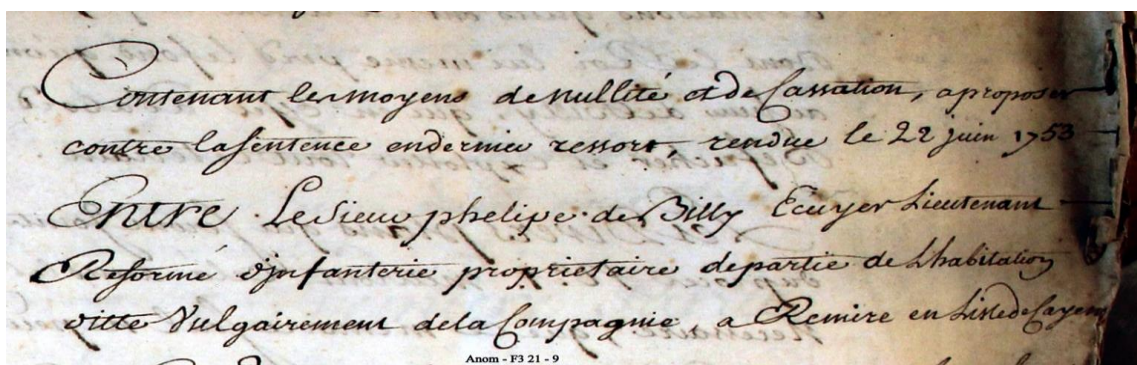 Contenant les moyens de nullité et de Cassation, a proposer
contre la sentence en dernier ressort, rendue le 22 juin 1753
Entre Le Sieur phelipe de Billy Ecuyer Lieutenant
Reformé d'infanterie proprietaire de partie de L'habitation
ditte Vulgairement de la Compagnie, a Remire en Lisle de Cayenne
Anom - F3 21 - 9